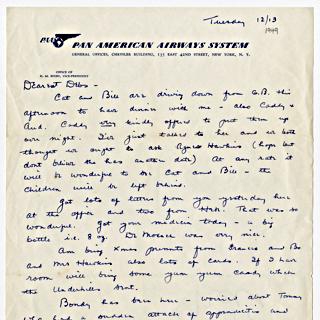 Tuesday 12/13
1949
PAA
PAN AMERICAN AIRWAYS SYSTEM
GENERAL OFFICES, CHRYSLER BUILDING, 135 EAST 42ND STREET, NEW YORK, N. Y.
OFFICE OF
VICE-PRESIDENT
Dearest
Cat and Bill are driving down from G.B. this
afternoon to have dinner with me - also Caddy &
And. Caddy very kindly offers to put them up
over night. I've just talked to her and we both
thought we ought to ask Agnes Hawkins (hope but
don't believe she has another date) At any rate it
will be wonderful to see Cat and Bill - the
children will be left behind.
Got lots of letters from you yesterday here
at the office and two from . That was so
wonderful. Got your medicine today - a big
bottle i.e. 8 oz. Dr was very nice.
Am bring Xmas presents from Frances and Bo
and Mrs Hawkins also lots of cards. If I have
room will bring some yum yum candy which
the Underhills sent.
Bondy has been here - worried about Tomas
who had a sudden attack of appendicitis and